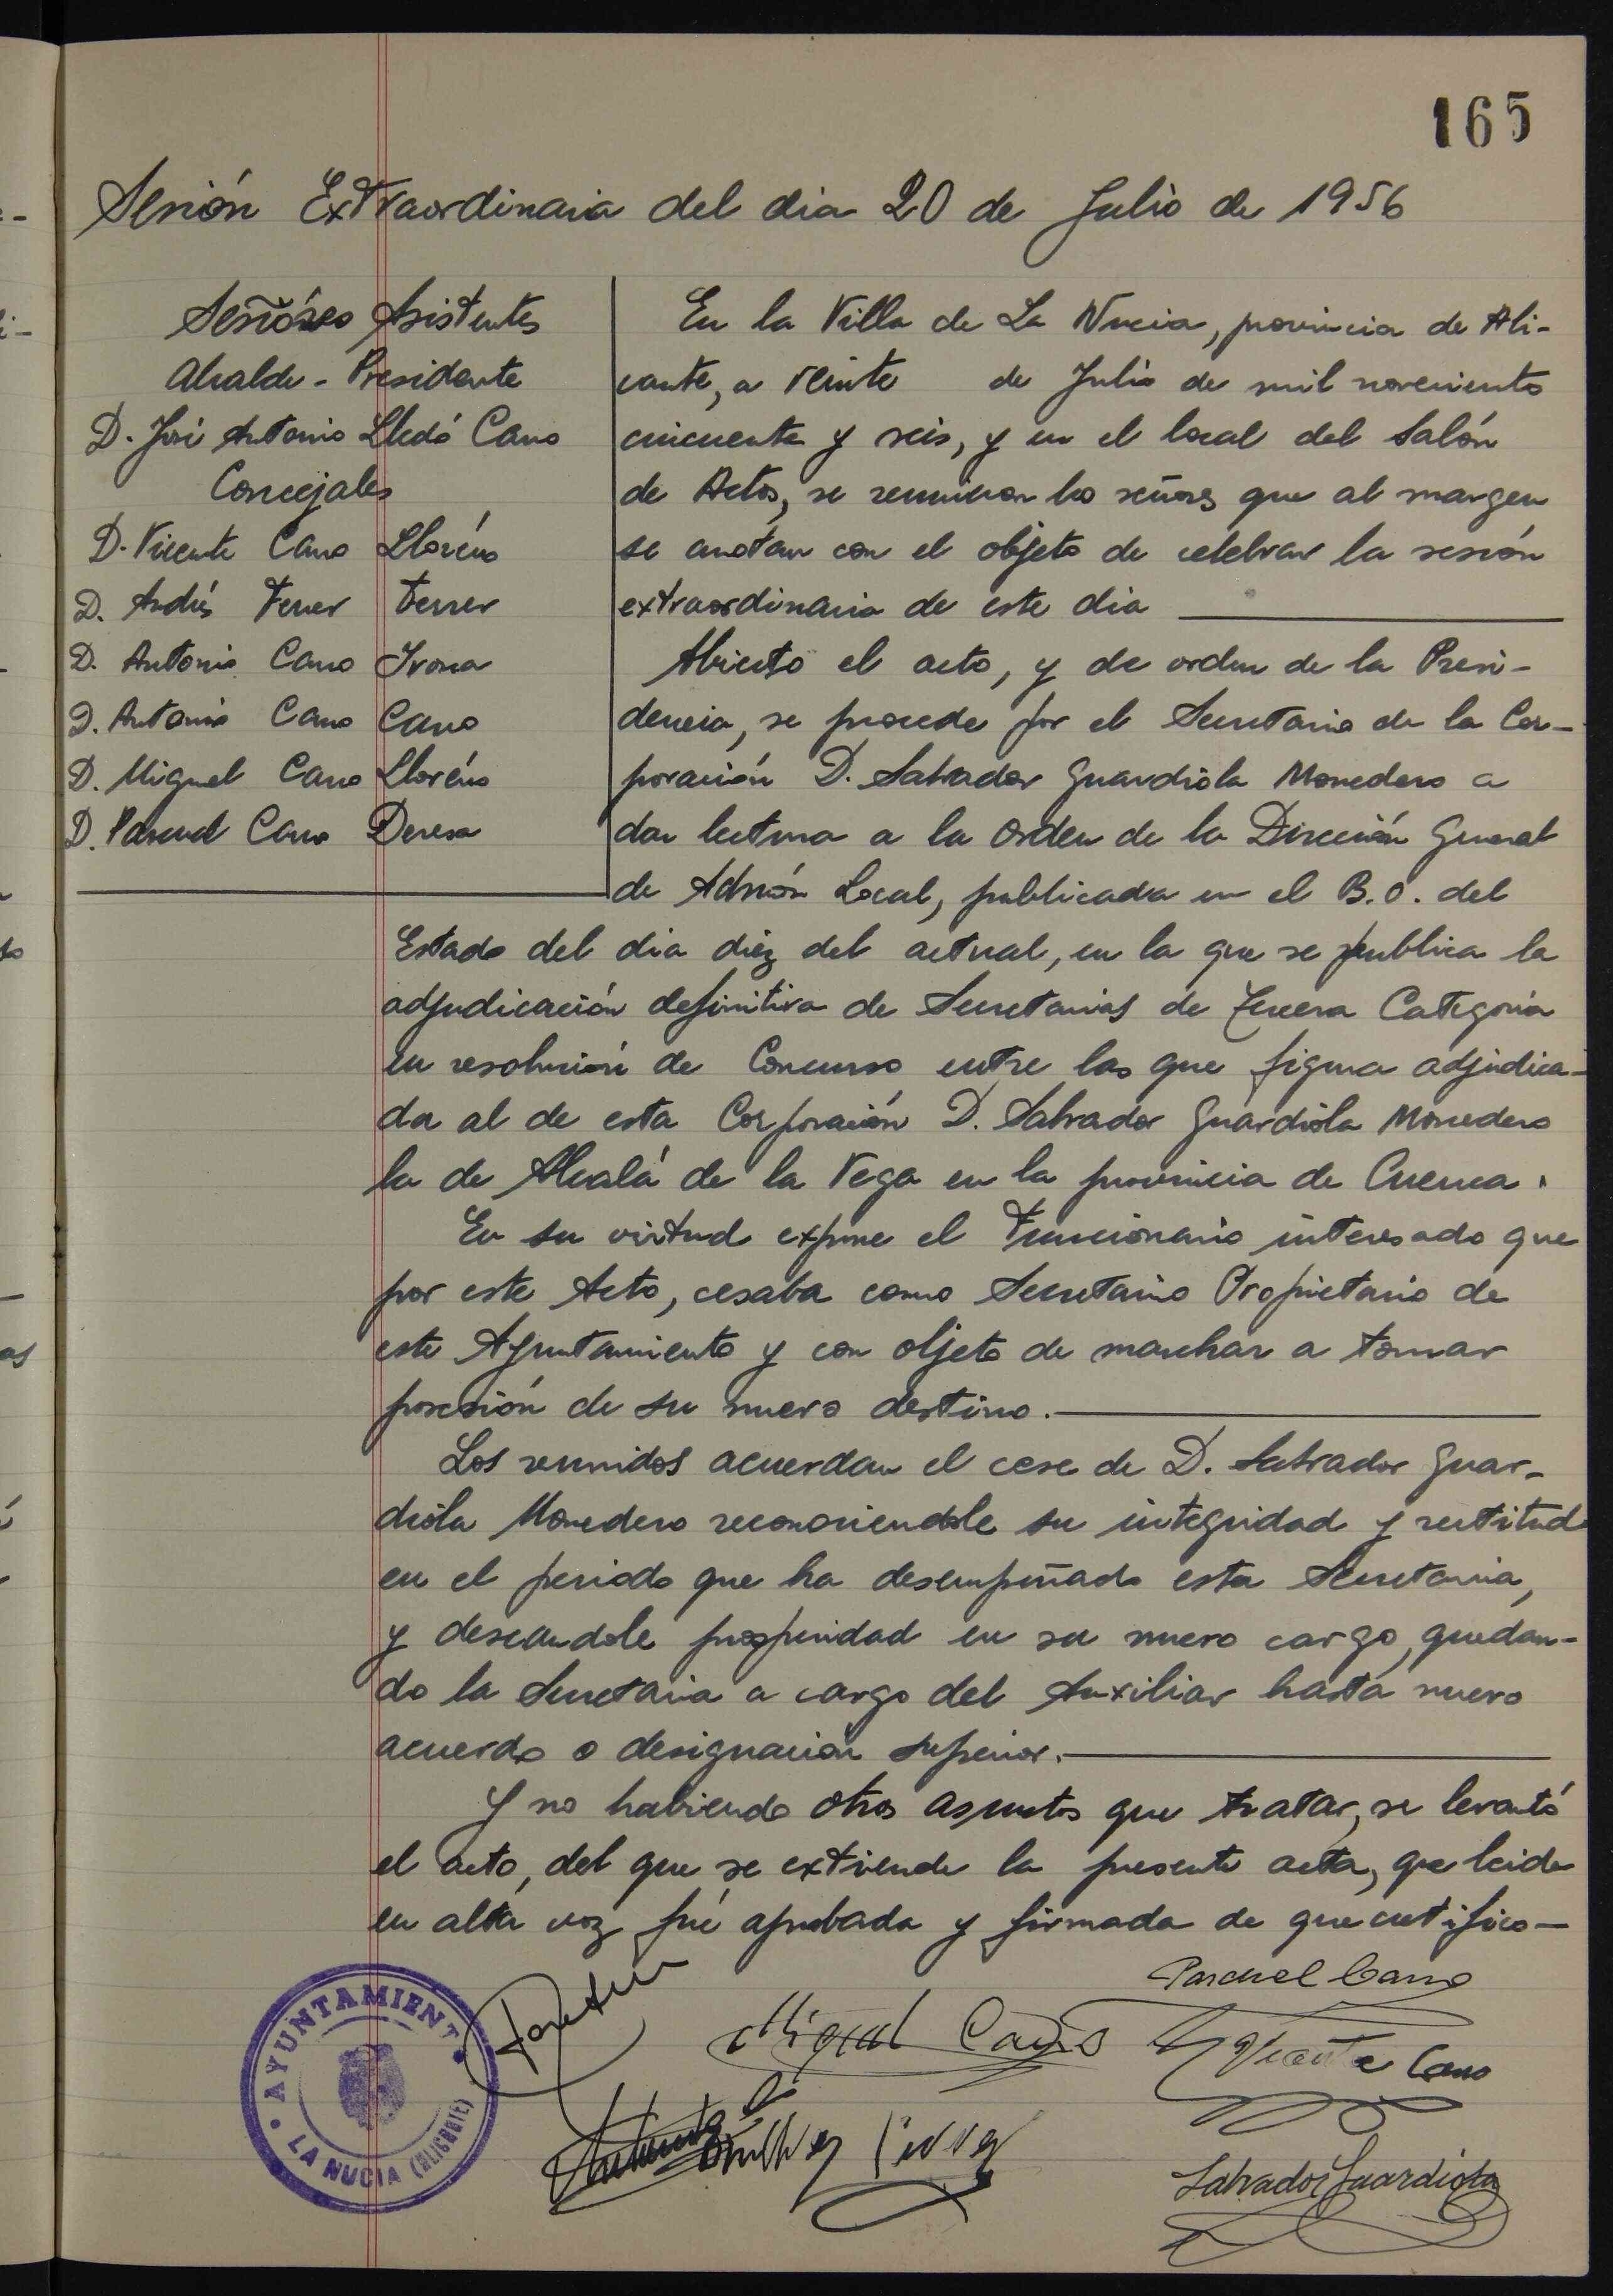 165
Sesión Extraordinaria del dia 20 de Julio de 1956
Señores Asistentes
Alcalde - Presidente
D. José Antonio Lledó Cano
Concejales
D. Vicente Cano Lloréns
D. Andrés Ferrer Ferrer
D. Antonio Cano Ivorra
D. Antonio Cano Cano
D. Miguel Cano Lloréns
D. Pascual Cano Devesa
En la Villa de La Nucia, provincia de Ali-
cante, a veinte de Julio de mil novecientos
cincuenta y seis, y en el local del Salón
de Actos, se reunieron los señores que al margen
se anotan con el objeto de celebrar la sesión
extraordinaria de este dia
Abierto el acto, y de orden de la Presi-
dencia, se procede por el Secretario de la Cor-
poración D. Salvador Guardiola Monedero a
dar lectura a la Orden de la Dirección General
de Admón Local, publicada en el B.O. del
Estado del dia diez del actual, en la que se publica la
adjudicación definitiva de Secretarias de Tercera Categoria
en resolución de Concurso entre las que figura adjudica-
da al de esta Corporación D. Salvador Guardiola Monedero
la de Alcalá de la Vega en la provincia de Cuenca.
En su virtud expone el Funcionario interesado que
por este Acto, cesaba como Secretario Propietario de
este Ayuntamiento y con objeto de marchar a tomar
posesión de su nuevo destino.
Los reunidos acuerdan el cese de D. Salvador Guar-
diola Monedero reconociendole su integridad y rectitud
en el periodo que ha desempeñado esta Secretaria,
y deseandole prosperidad en su nuevo cargo, quedan-
do la Secretaria a cargo del Auxiliar hasta nuevo
acuerdo o designación superior.
Y no habiendo otros asuntos que tratar, se levantó
el acto, del que se extiende la presente acta, que leida
en alta voz fué aprobada y firmada de que certifico
Pascual Cano
Miguel Cano
Vicente Cano
AYUNTAMIENTO
LA NUCIA (ALICANTE)
Salvador Guardiola